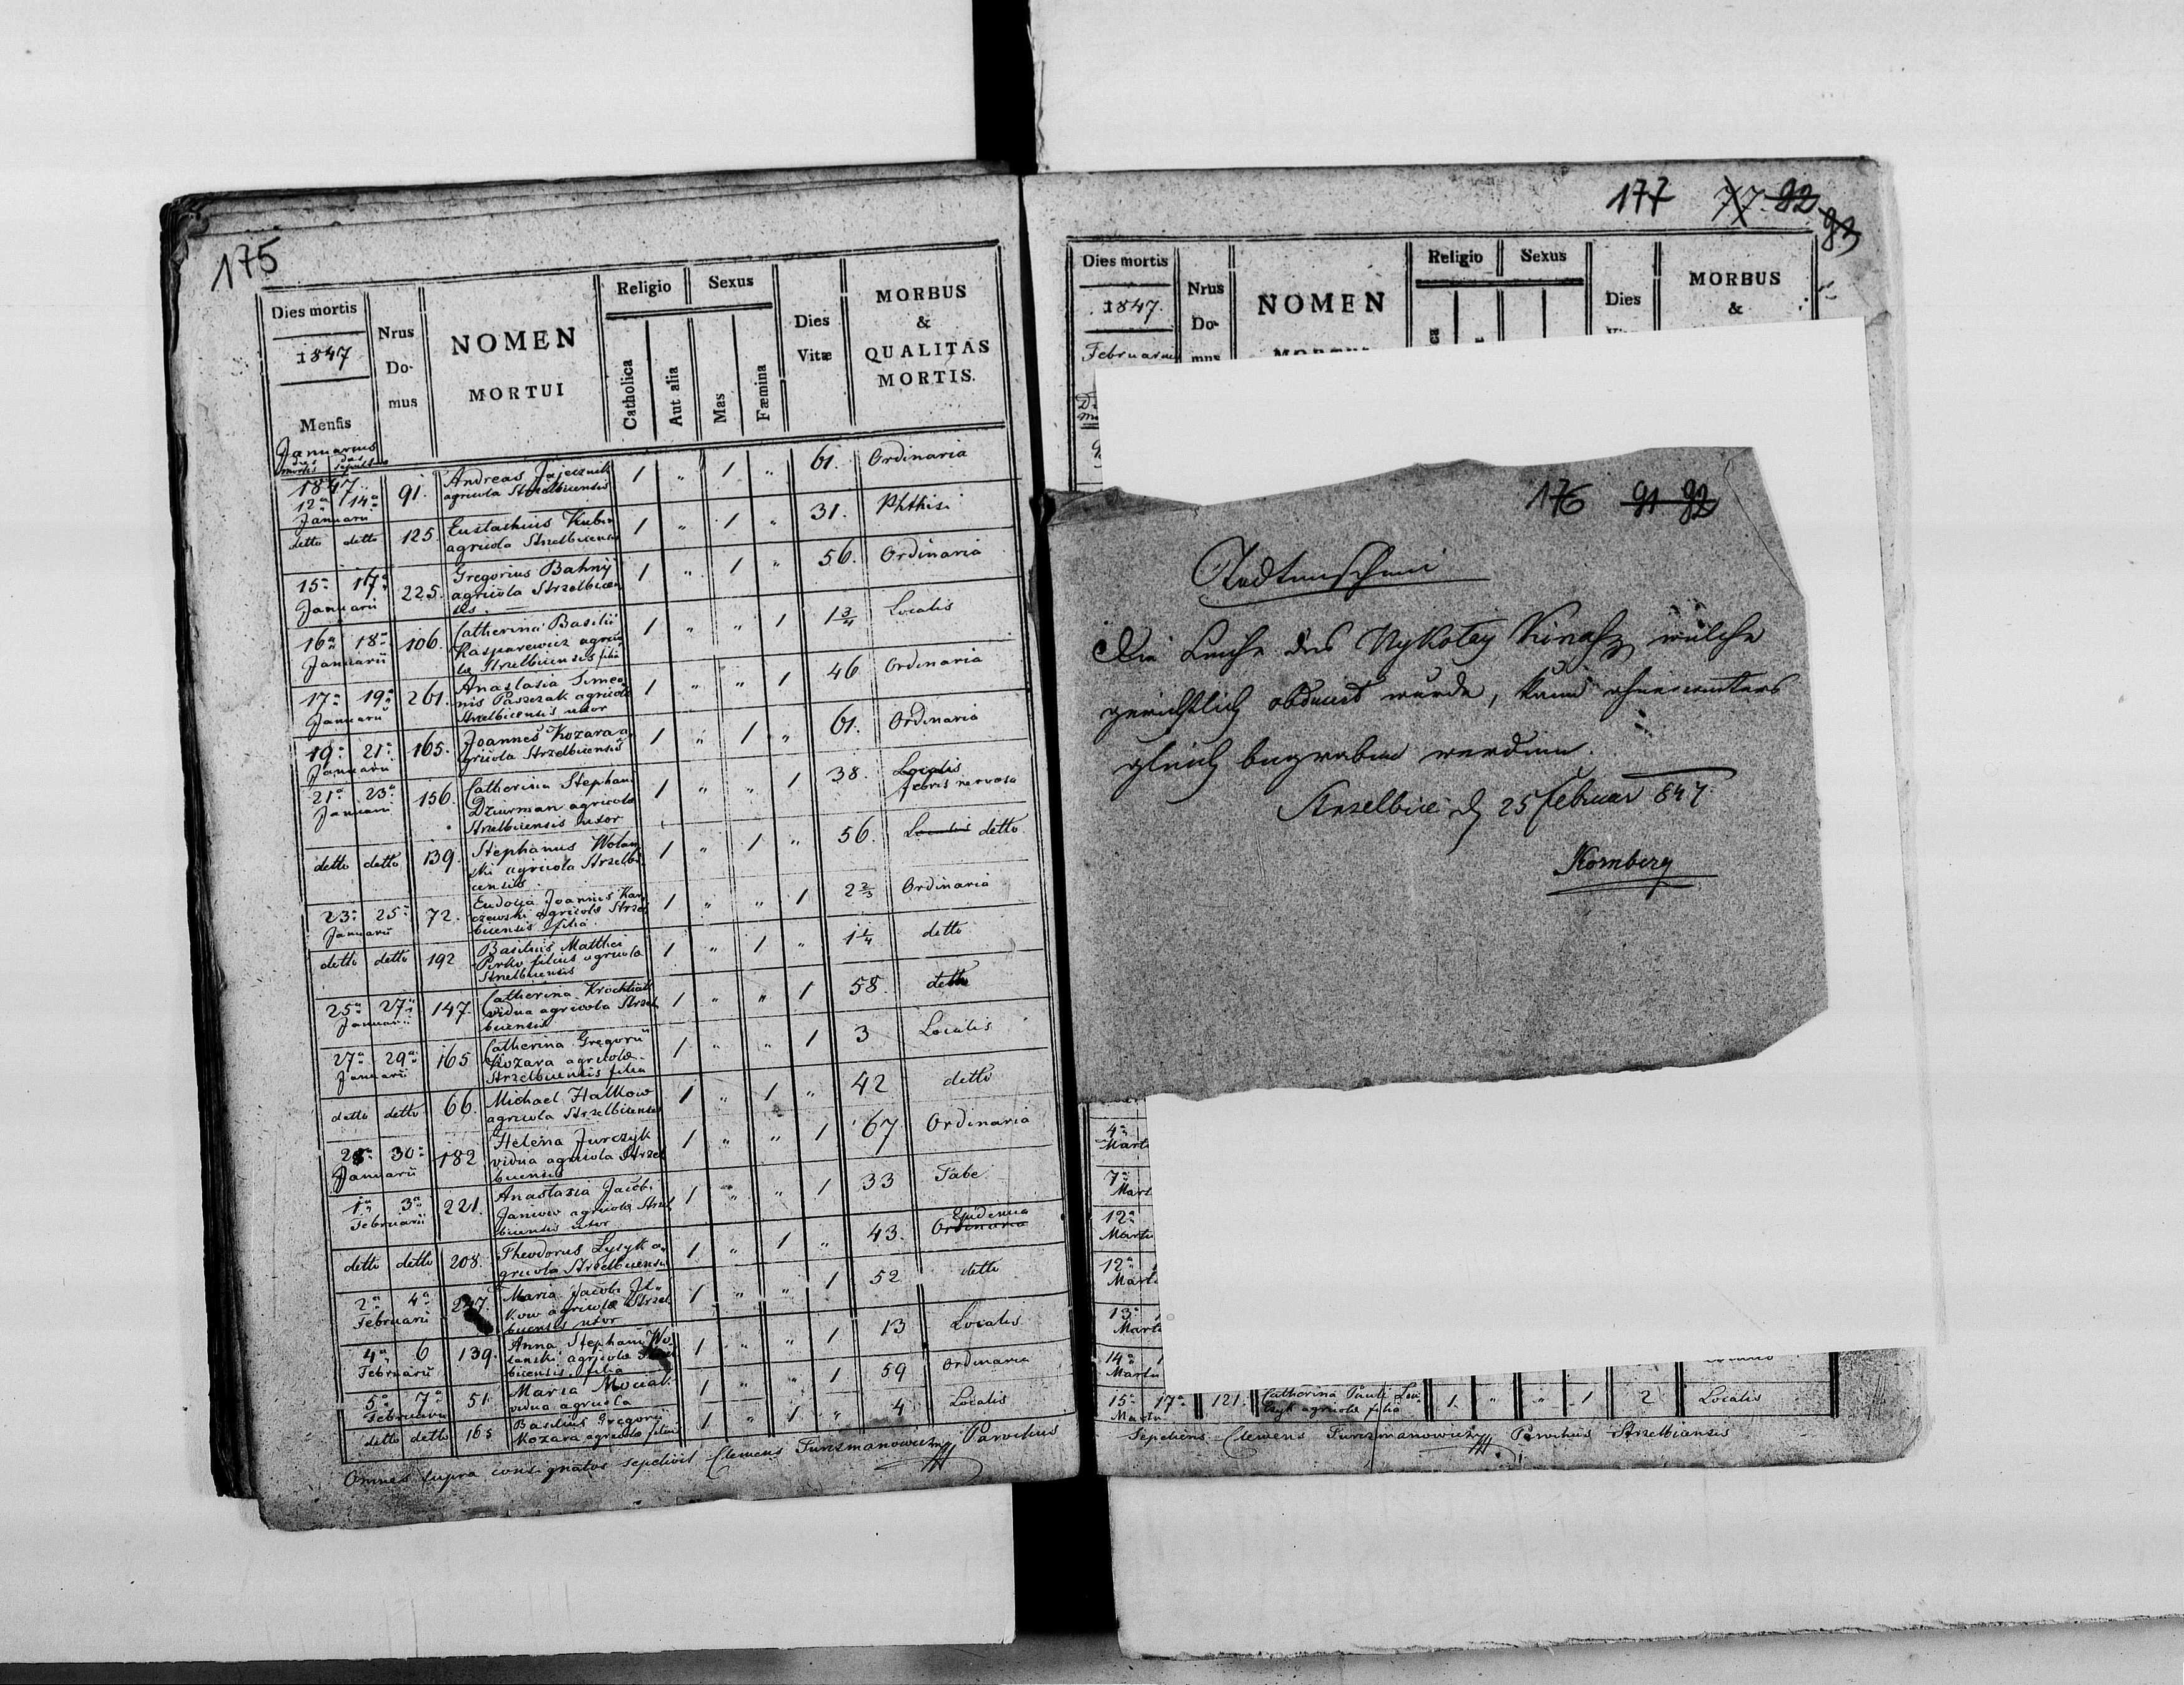 175
Dies mortis
1847
Mensis
Januarius
dies mortis dies sepult.
Nrus Domus
NOMEN
MORTUI
Religio
Catholica
Aut alia
Sexus
Mas
Fæmina
Dies Vitæ
MORBUS
&
QUALITAS
MORTIS.
1847
12a 14a Januarii 91. Andreas Jajecznik agricola Strzelbicensis 1 " 1 " 61. Ordinaria
detto detto 125. Eustachius Kubin agricola Strzelbicensis 1 " 1 " 31. Phthisi
15a 17a Januarii 225. Gregorius Bahnij agricola Strzelbicensis. 1 " 1 " 56. Ordinaria
16a 18a Januarii 106. Catherina Basilii Kasparewicz agricolæ Strzelbicensis filia 1 " " 1 1 3/4 Localis
17a 19a Januarii 261. Anastasia Simeonis Paszczak agricolæ Strzelbicensis uxor 1 " " 1 46 Ordinaria
19a 21a Januarii 165. Joannes Kozara agricola Strzelbicensis 1 " 1 " 61. Ordinaria
21a 23a Januarii 156. Catherina Stephani Dziurman agricolæ Strzelbicensis uxor 1 " " 1 38. Localis febris nervosa
detto detto 139. Stephanus Wolanski agricola Strzelbicensis. 1 " 1 " 56. Localis detto
23a 25a Januarii 72. Eudocia Joannis Kanczewski agricolæ Strzelbicensis filia 1 " " 1 2 2/3 Ordinaria
detto detto 192 Basilius Matthei Pirko filius agricolæ Strzelbicensis 1 " 1 " 1 1/4 detto
25a 27a Januarii 147. Catherina Krochtiak vidua agricola Strzelbicensis 1 " " 1 58. detto
27a 29a Januarii 165 Catherina Gregorii Kozara agricolæ Strzelbicensis filia 1 " " 1 3 Localis
detto detto 66. Michael Halkow agricola Strzelbicensis 1 " 1 " 42 detto
28a 30a Januarii 182 Helena Jurczyk vidua agricola Strzelbicensis 1 " " 1 67 Ordinaria
1a 3a Februarii 221. Anastasia Jacobi Janiow agricolæ Strzelbicensis uxor 1 " " 1 33 Tabe
detto detto 208. Theodorus Lysyk agricola Strzelbicensis 1 " 1 " 43. Epidemia Ordinaria
2a 4a Februarii Maria Jacobi agricolæ Strzelbicensis uxor 1 " " 1 52 detto
4a 6 Februarii 139. Anna Stephani Wolanski agricolæ Strzelbicensis filia 1 " " 1 13 Localis
5a 7a Februarii 51. Maria vidua agricola 1 " " 1 59 Ordinaria
detto detto 165 Basilius Gregorii Kozara agricolæ filius 1 " 1 " 4 Localis
Omnes supra consignatos sepelivit Clemens Turczmanowicz Parochus
177 77. 92 93
Dies mortis
1847.
Februarius
Nrus Domus
NOMEN
Religio
Sexus
Dies
MORBUS
&
176 91 92
Todtenschein
Die Leiche des Nykolay Kinasz welche
gerichtlich obducirt wurde, kann ohneweiters
gleich begraben werden.
Strzelbice d 25 Februar 847.
Kornberg
4a
Marti
7a
Mart
12a
Marti
12a
Marti
13a
Marti
14a
Martii
15a 17a Martii 121. Catherina Pauli agricolæ filia 1. " " 1 2 Localis
Sepeliens Clemens Turczmanowicz Parochus Strzelbicensis